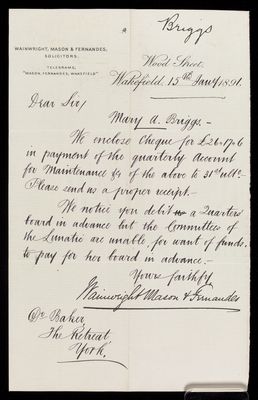 Briggs
WAINWRIGHT, MASON & FERNANDES,
SOLICITORS.
TELEGRAMS,
"MASON, FERNANDES, WAKEFIELD"
Wood Street,
Wakefield, 15th Jany 1891.
Dear Sir/
Mary A. Briggs.-
We enclose cheque for £26.17.6
in payment of the quarterly Account
for Maintenance &c of the above to 31st ulto.-
Please send us a proper receipt.-
We notice you debit us a Quarters'
board in advance but the Committees of
the Lunatic are unable, for want of funds,
to pay for her board in advance.-
Yours faithfy
Wainwright Mason & Fernandes
Dr Baker,
The Retreat,
York.